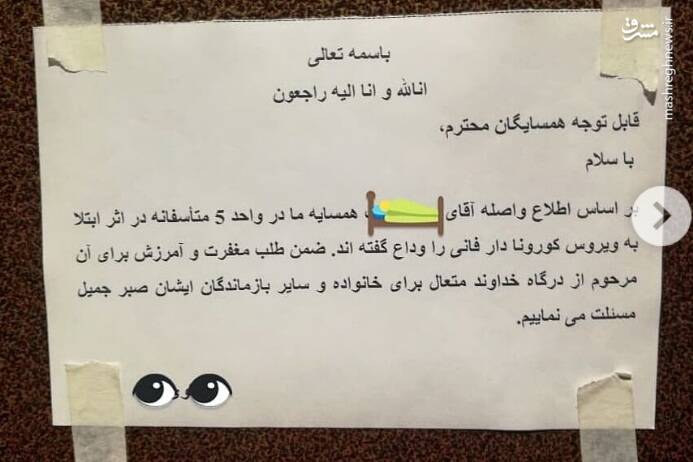 باسمه تعالی
اناالله و انا الیه راجعون
قابل توجه همسایگان محترم،
با سلام
بر اساس اطلاع واصله آقای ، همسایه ما در واحد 5 متأسفانه در اثر ابتلا
به ویروس کورونا دار فانی را وداع گفته اند. ضمن طلب مغفرت و آمرزش برای آن
مرحوم از درگاه خداوند متعال برای خانواده و سایر بازماندگان ایشان صبر جمیل
مسئلت می نماییم.
مشرق
mashreghnews.ir